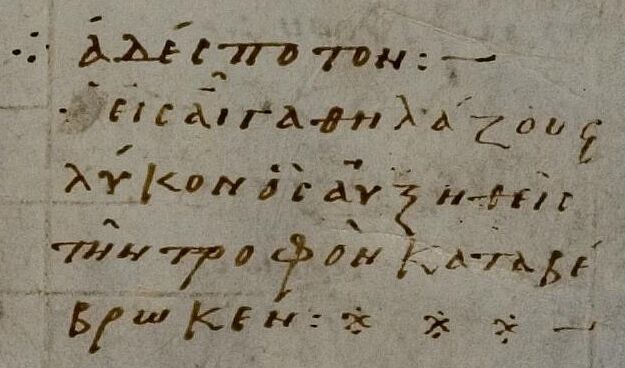 ∴ ἀδέσποτον: —
· εἰς αἶγα θηλάζους
λύκον ὃς αὐξηθεὶς
τὴν τροφὸν καταβέ
βρωκεν: ※ ※ ※ —